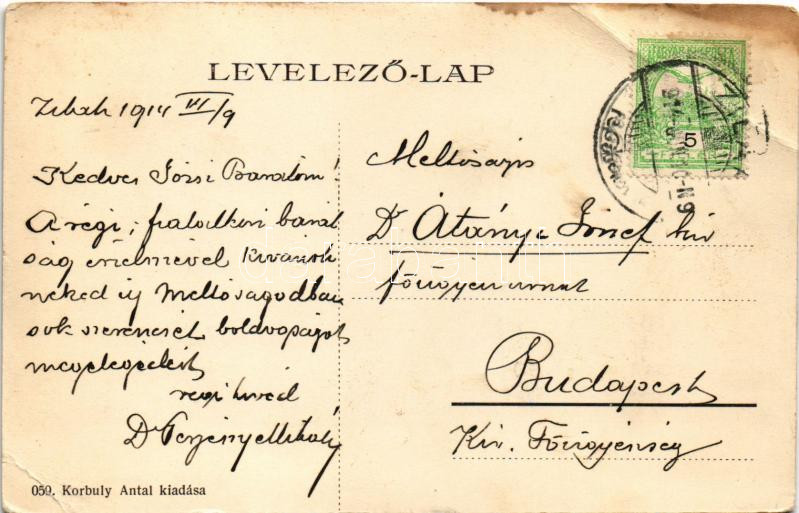 LEVELEZŐ-LAP
1914 VI/9
Kedves Józsi Barátom!
A régi, fiatalkori barát
ság érzelmével kivánok
neked új Méltóságodban
sok szerencsét, boldogságot
megelégedést
régi híved
Dr Mihály
Méltóságos
Dr Átányi József kir
főügyész urnak
Budapest
Kir. Főügyészség
MAGYAR KIR. POSTA
5
059. Korbuly Antal kiadása